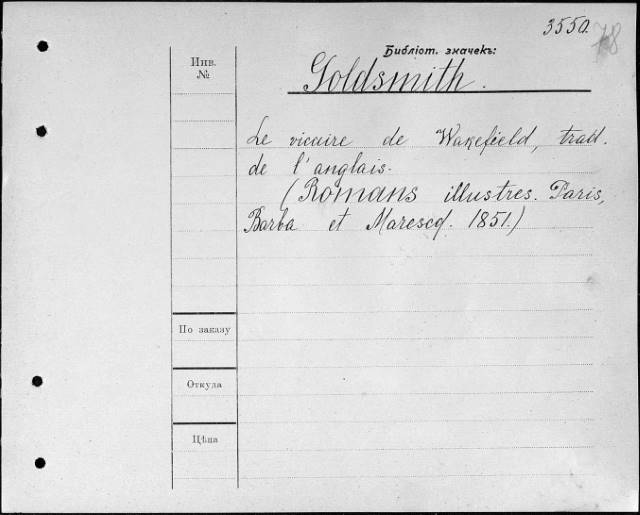 3550.
78
Библіот. значекъ:
Инв.
№
Goldsmith.
Le vicaire de Wakefield, trad.
de l'anglais.
(Romans illustres. Paris,
Barba et Marescq. 1851.)
По заказу
Откуда
Цѣна